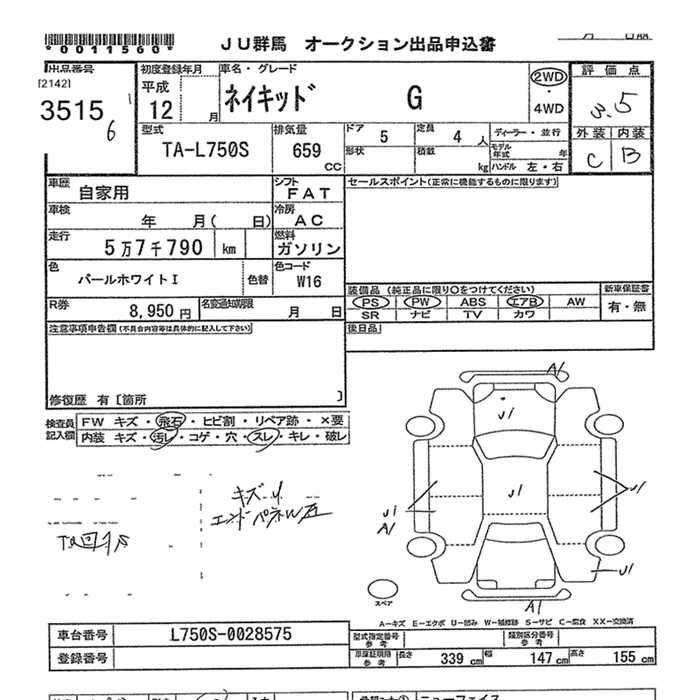 *0011560*
JU群馬 オークション出品申込書
出品番号
[2142]
3515
6
初度登録年月
平成
12 月
車名・グレード
ネイキッド G
2WD
・
4WD
評価点
3.5
外装 内装
C B
型式
TA-L750S
排気量
659
CC
ドア 5
定員 4 人
形状
積載 kg
ディーラー・並行
モデル年式 年
ハンドル 左・右
車歴
自家用
シフト
FAT
車検
年 月( 日)
冷房
AC
走行
5万7千790 km
燃料
ガソリン
色
パールホワイトI
色替
色コード
W16
R券
8,950 円
名変通知期限
月 日
セールスポイント(正常に機能するものに限ります)
装備品 (純正品に限り○をつけてください)
PS PW ABS エアB AW
SR ナビ TV カワ
新車保証書
有・無
後日品
注意事項申告欄(不具合内容等は具体的に記入して下さい)
修復歴 有 [箇所 ]
検査員
記入欄
FW キズ・飛石・ヒビ割・リペア跡・×要
内装 キズ・汚レ・コゲ・穴・スレ・キレ・破レ
キズ
エンド
A1
U1
U1
U1
A1
U1
U1
A1
スペア
A-キズ E-エクボ U-凹み W-補修跡 S-サビ C-腐食 XX-交換済
車台番号
L750S-0028575
登録番号
型式指定番号
参考
類別区分番号
参考
車庫証明用
参考
長さ 339 cm
幅 147 cm
高さ 155 cm
ニューフェイス